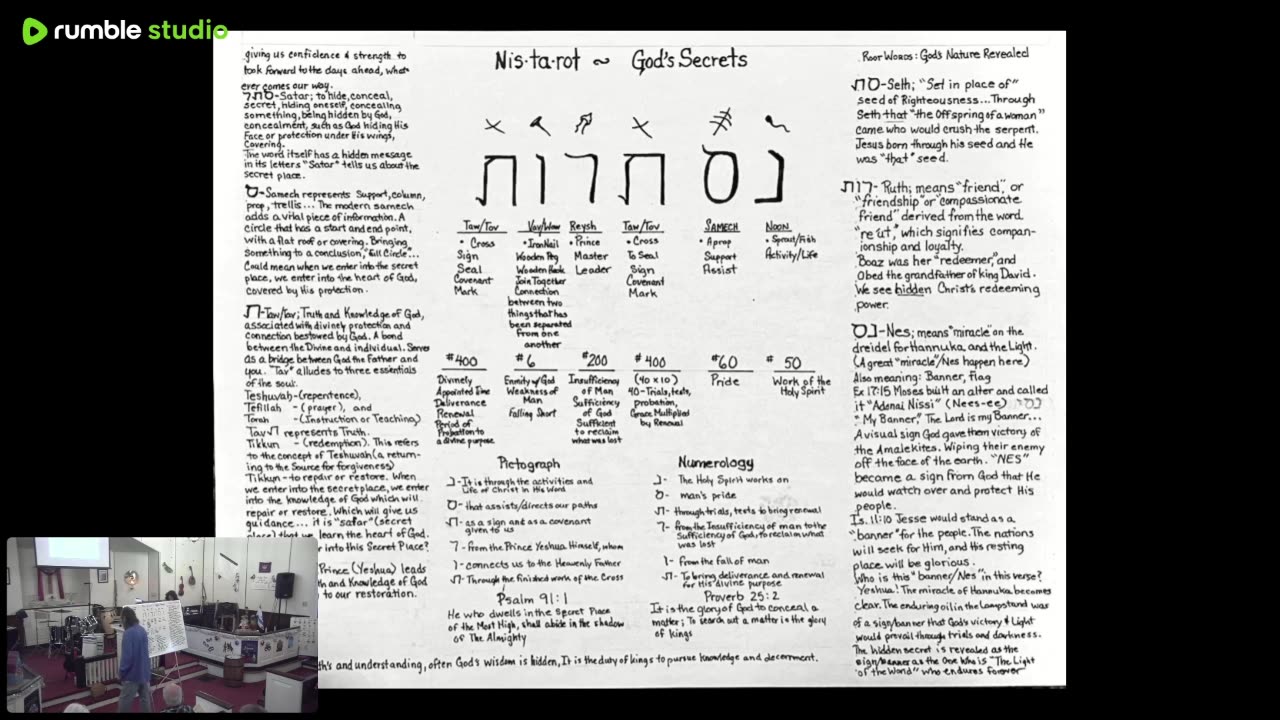 rumble studio
giving us confidence & strength to
look forward to the days ahead, what
ever comes our way.
סתר-Satar; to hide, conceal,
secret, hiding oneself, concealing
something, being hidden by God,
concealment, such as God hiding His
Face or protection under His wings,
Covering.
The word itself has a hidden message
in its letters "Satar" tells us about the
secret place.
ס-Samech represents Support, column,
prop, trellis... The modern samech
adds a vital piece of information. A
circle that has a start and end point,
with a flat roof or covering. Bringing
Something to a conclusion, "full Circle"...
Could mean when we enter into the secret
place, we enter into the heart of God,
covered by His protection.
ת-Taw/Tav; Truth and Knowledge of God,
associated with divinely protection and
connection bestowed by God. A bond
between the Divine and individual. Serves
as a bridge between God the Father and
you. "Tav" alludes to three essentials
of the soul:
Teshuvah-(repentence),
Tefillah - (prayer), and
Torah - (Instruction or Teaching)
Tav ת represents Truth.
Tikkun - (redemption). This refers
to the concept of Teshuvah (a return-
ing to the Source for forgiveness)
Tikkun-to repair or restore. When
we enter into the secret place, we enter
into the knowledge of God which will
repair or restore. Which will give us
guidance... it is "satar" (secret
place) that we learn the heart of God.
r into this Secret Place?
Prince (Yeshua) leads
th and Knowledge of God
to our restoration.
Nis·ta·rot ~ God's Secrets
נסתרות
Taw/Tov
• Cross
Sign
Seal
Covenant
Mark
Vav/Waw
• Iron Nail
Wooden Peg
Wooden Hook
Join Together
Connection
between two
things that has
been separated
from one
another
Reysh
• Prince
Master
Leader
Taw/Tov
• Cross
To Seal
Sign
Covenant
Mark
SAMECH
• A prop
Support
Assist
NOON
• Sprout/Fish
Activity/Life
#400
Divinely
Appointed Time
Deliverance
Renewal
Period of
Probation to
a divine purpose
#6
Enmity w/God
Weakness of
Man
Falling Short
#200
Insufficiency
of Man
Sufficiency
of God
Sufficient
to reclaim
what was lost
#400
(40 x 10)
40-Trials, tests,
probation,
Grace Multiplied
by Renewal
#60
Pride
# 50
Work of the
Holy Spirit
Pictograph
נ-It is through the activities and
Life of Christ in His Word
ס-that assists/directs our paths
ת-as a sign and as a covenant
given to us
ר-From the Prince Yeshua Himself, whom
ו-connects us to the Heavenly Father
ת-Through the finished work of the Cross
Psalm 91:1
He who dwells in the Secret Place
of the Most High, shall abide in the shadow
of The Almighty
Numerology
נ- The Holy Spirit works on
ס- man's pride
ת-through trials, tests to bring renewal
ר-from the Insufficiency of man to the
Sufficiency of God, to reclaim what
was lost
ו-From the fall of man
ת-To bring deliverance and renewal
for His divine purpose
Proverb 25:2
It is the glory of God to conceal a
matter; To search out a matter is the glory
of kings
th's and understanding, often God's wisdom is hidden, It is the duty of kings to pursue knowledge and decernment.
Root Words: God's Nature Revealed
סת-Seth; "Set in place of"
seed of Righteousness... Through
Seth that "the Offspring of a woman"
came who would crush the serpent.
Jesus born through his seed and He
was "that" seed.
רות- Ruth; means "friend", or
"friendship" or "compassionate
friend" derived from the word.
"re'ut," which signifies compan-
ionship and loyalty.
Boaz was her "redeemer," and
Obed the grandfather of king David.
We see hidden Christ's redeeming
power.
נס-Nes; means "miracle" on the
dreidel for Hannuka, and the Light.
(A great "miracle"/Nes happen here)
Also meaning: Banner, flag
Ex 17:15 Moses built an alter and called
it "Adonai Nissi" (Nees-ee) נסי
"My Banner," The Lord is my Banner...
A visual sign God gave them victory of
the Amalekites. Wiping their enemy
off the face of the earth. "NES"
became a sign from God that He
would watch over and protect His
people.
Is. 11:10 Jesse would stand as a
"banner" for the people. The nations
will seek for Him, and His resting
place will be glorious.
Who is this "banner/Nes" in this verse?
Yeshua! The miracle of Hannuka becomes
clear. The enduring oil in the Lampstand was
of a sign/banner that God's victory & Light
would prevail through trials and darkness.
The hidden secret is revealed as the
sign/banner as the One who is "The Light
of the World" who endures forever